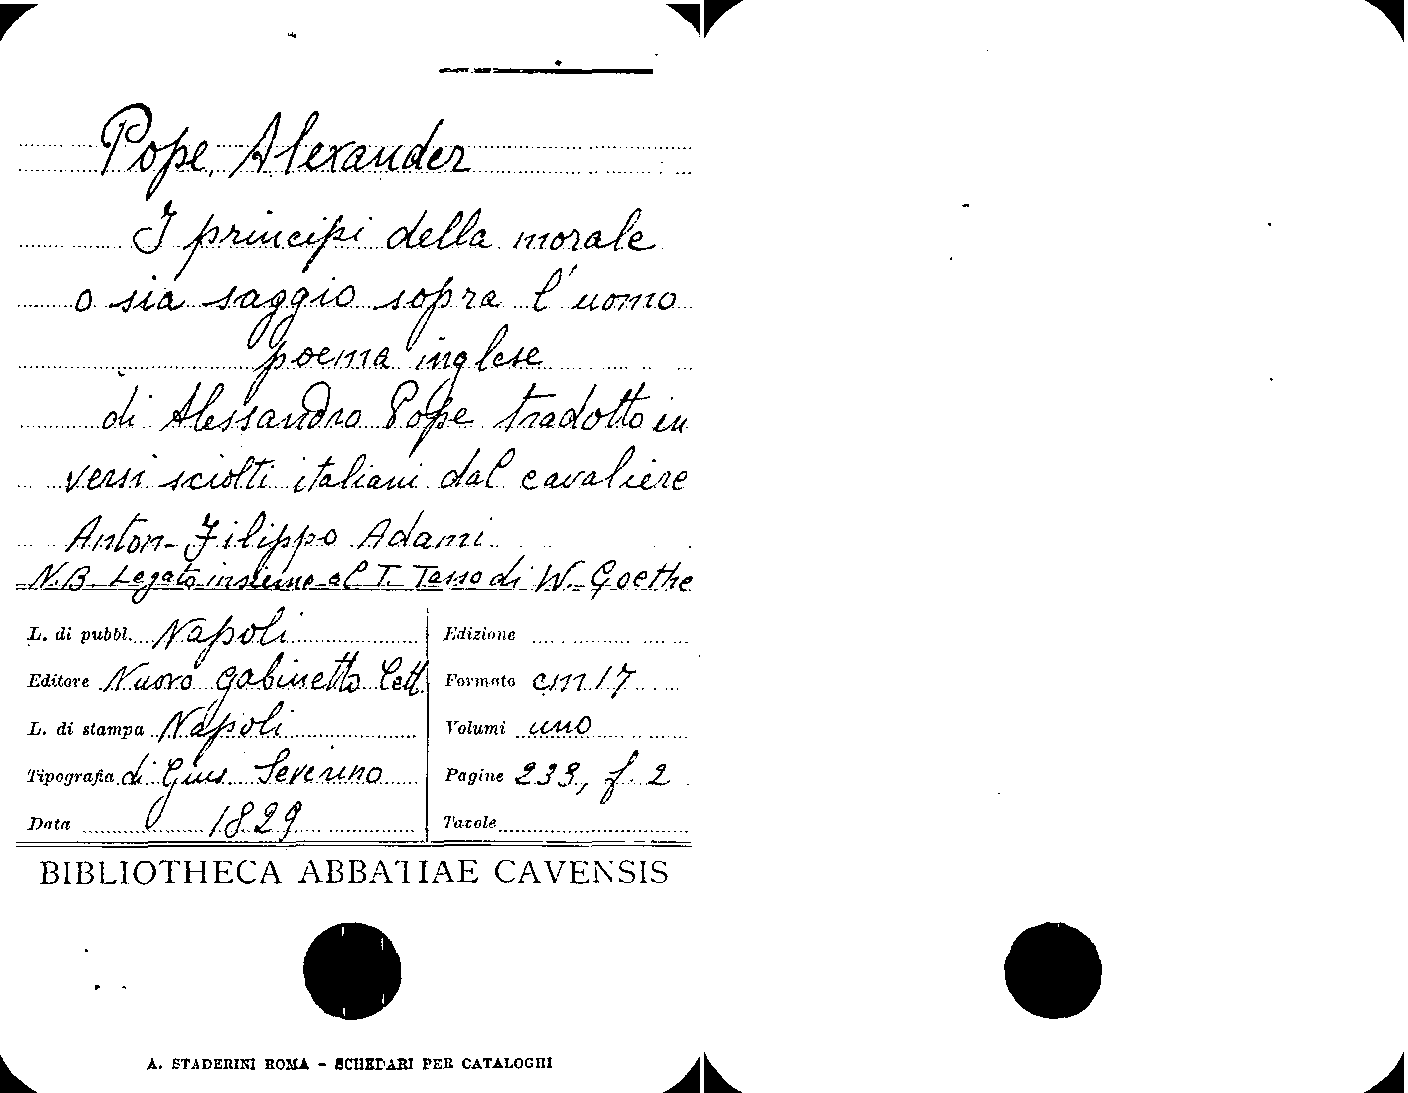 Pope, Alexander
I principi della morale
o sia saggio sopra l'uomo
poema inglese
di Alessandro Pope tradotto in
versi sciolti italiani dal cavaliere
Anton-Filippo Adami
N.B. Legato insieme al T. Tasso di W. Goethe
L. di pubbl. Napoli
Editore Nuovo gabinetto Lett.
L. di stampa Napoli
Tipografia di Gius. Severino
Data 1829
Edizione
Formato cm 17
Volumi uno
Pagine 233, f. 2
Tavole
BIBLIOTHECA ABBATIAE CAVENSIS
A. STADERINI ROMA - SCHEDARI PER CATALOGHI